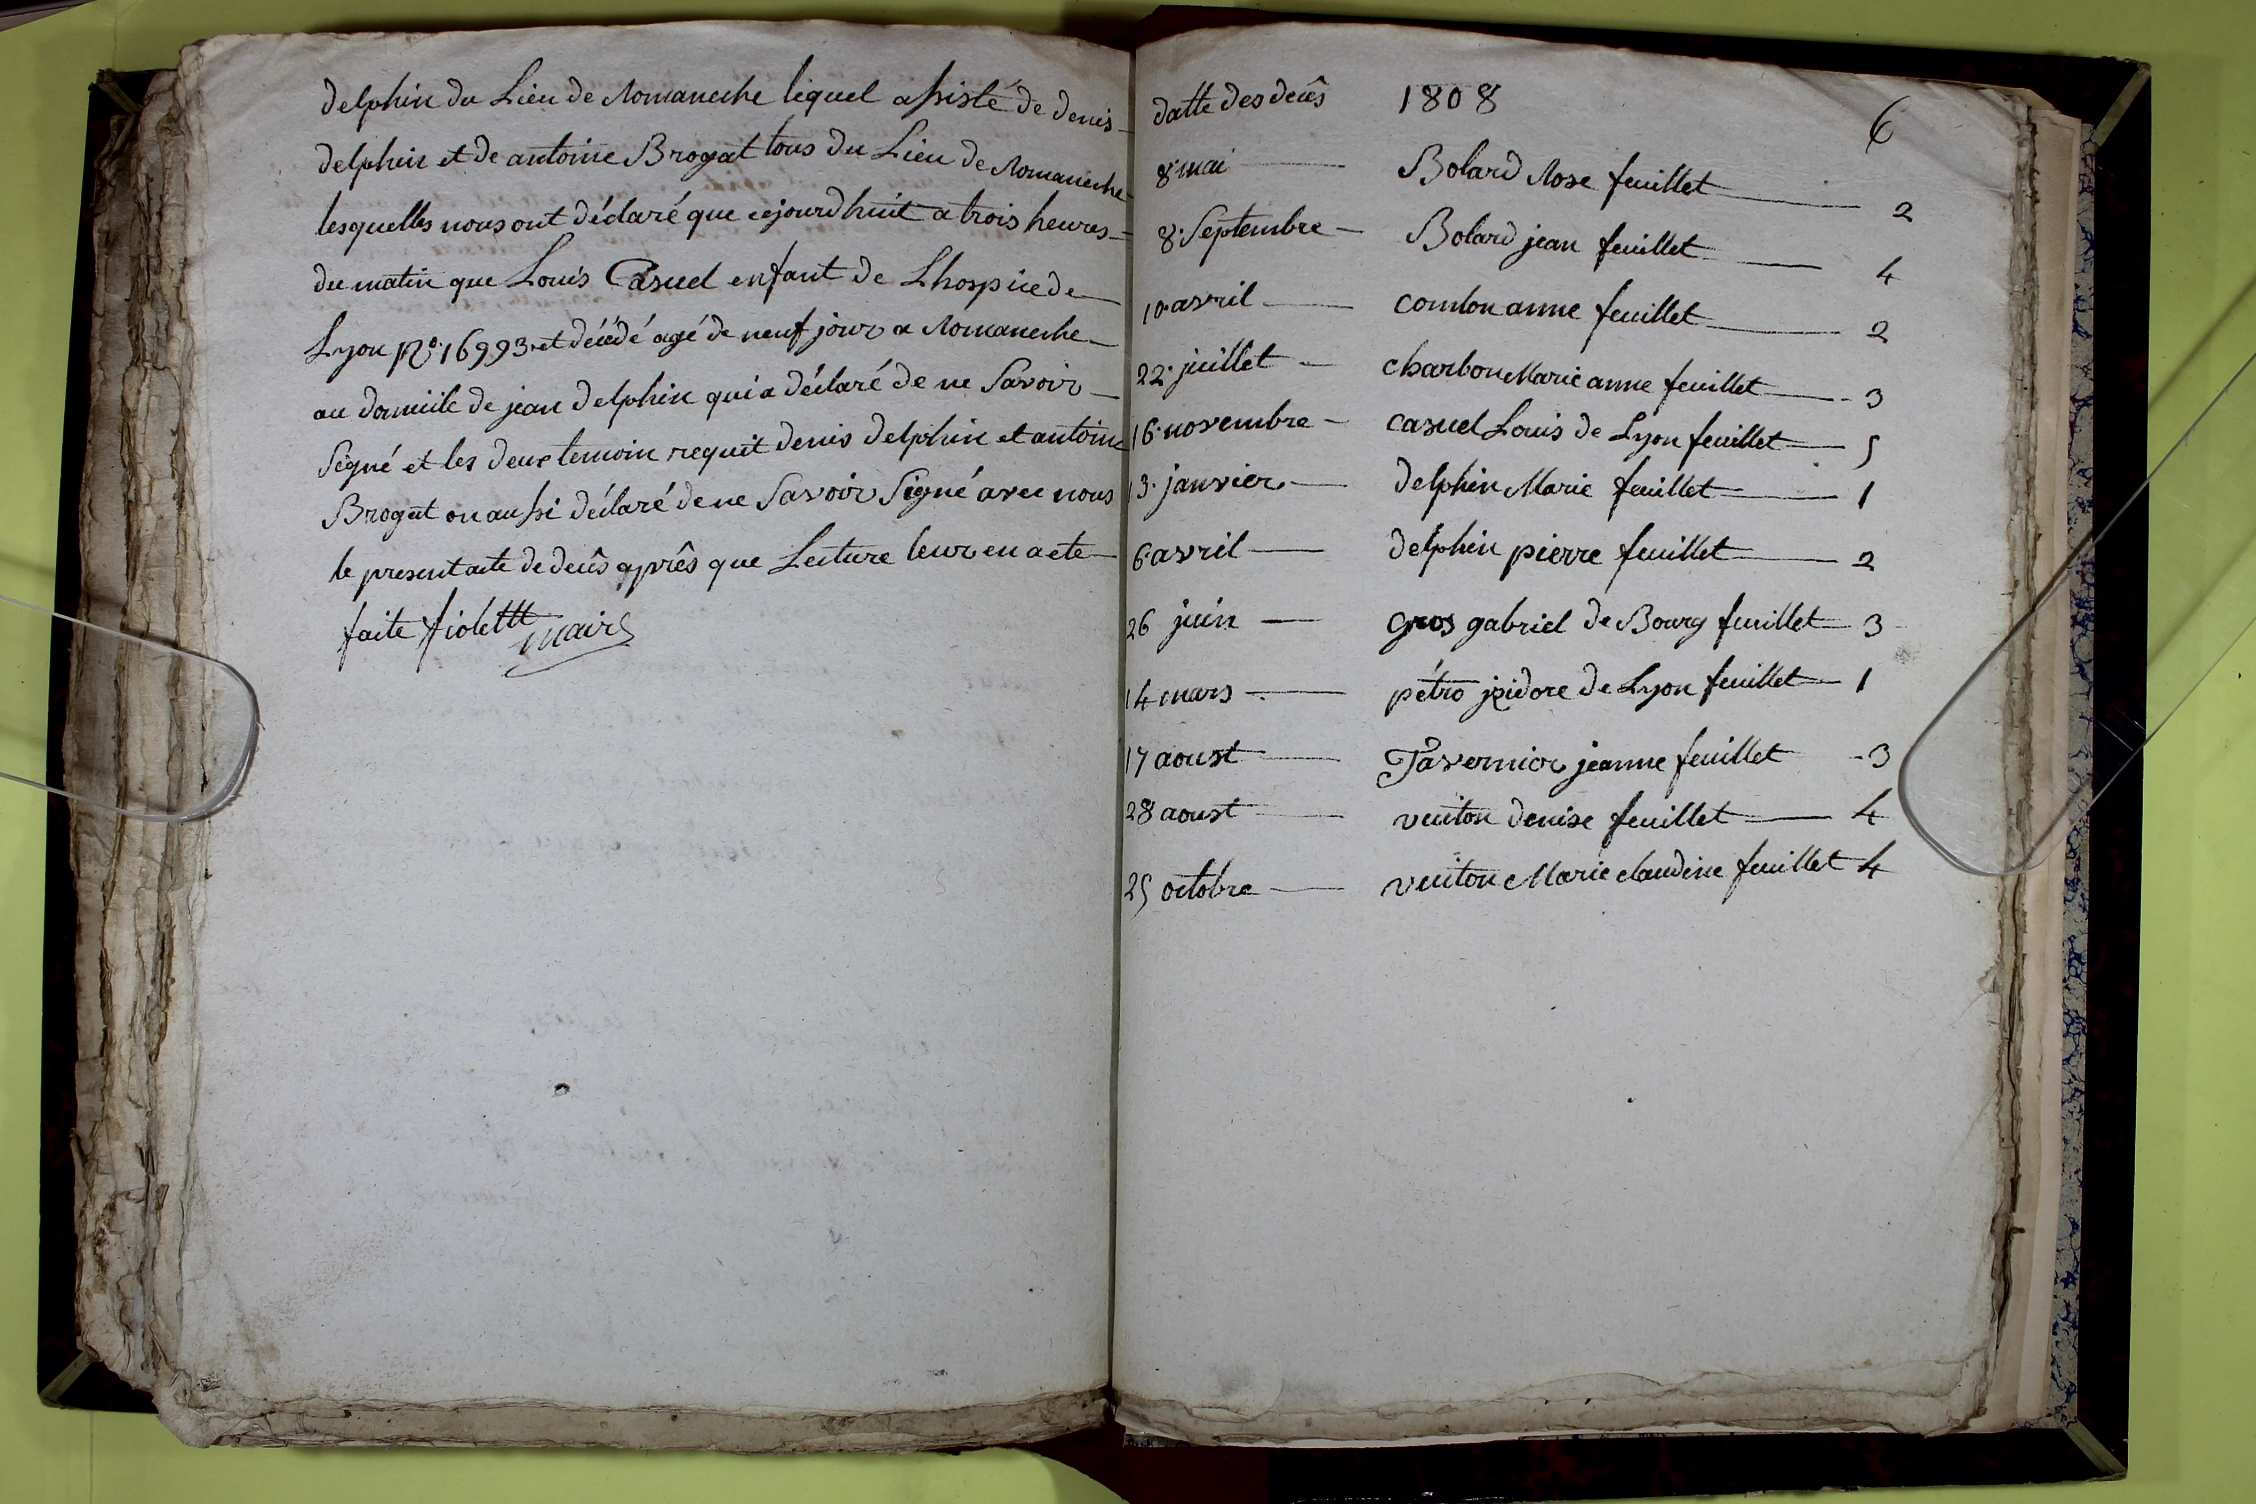 delphin du Lieu de Romaneche lequel assisté de denis
delphin et de antoine Brogat tous du Lieu de Romaneche
lesquelles nous ont déclaré que cejourdhuit a trois heures
du matin que Louis Casuel enfant de Lhospice de
Lyon No. 16993. et décédé agé de neuf jour a Romaneche
au domicile de jean delphin qui a déclaré de ne Savoir
Signé et les deux temoin requit denis delphin et antoine
Brogat on aussi déclaré de ne Savoir Signé avec nous
le present acte de decês aprês que Lecture leur en a ete
faite fiolettt maire
datte des decês 1808
6
8 mai Bolard Rose feuillet 2
8. Septembre Bolard jean feuillet 4
10. avril comton anne feuillet 2
22. juillet charbon Marie anne feuillet 3
16. novembre casuel Louis de Lyon feuillet 5
13. janvier delphin Marie feuillet 1
6. avril delphin pierre feuillet 2
26 juin gros gabriel de Bourg feuillet 3
14 mars pétro jzidore de Lyon feuillet 1
17 aoust Tavernier jeanne feuillet 3
28 aoust venton denise feuillet 4
25 octobre venton Marie claudine feuillet 4